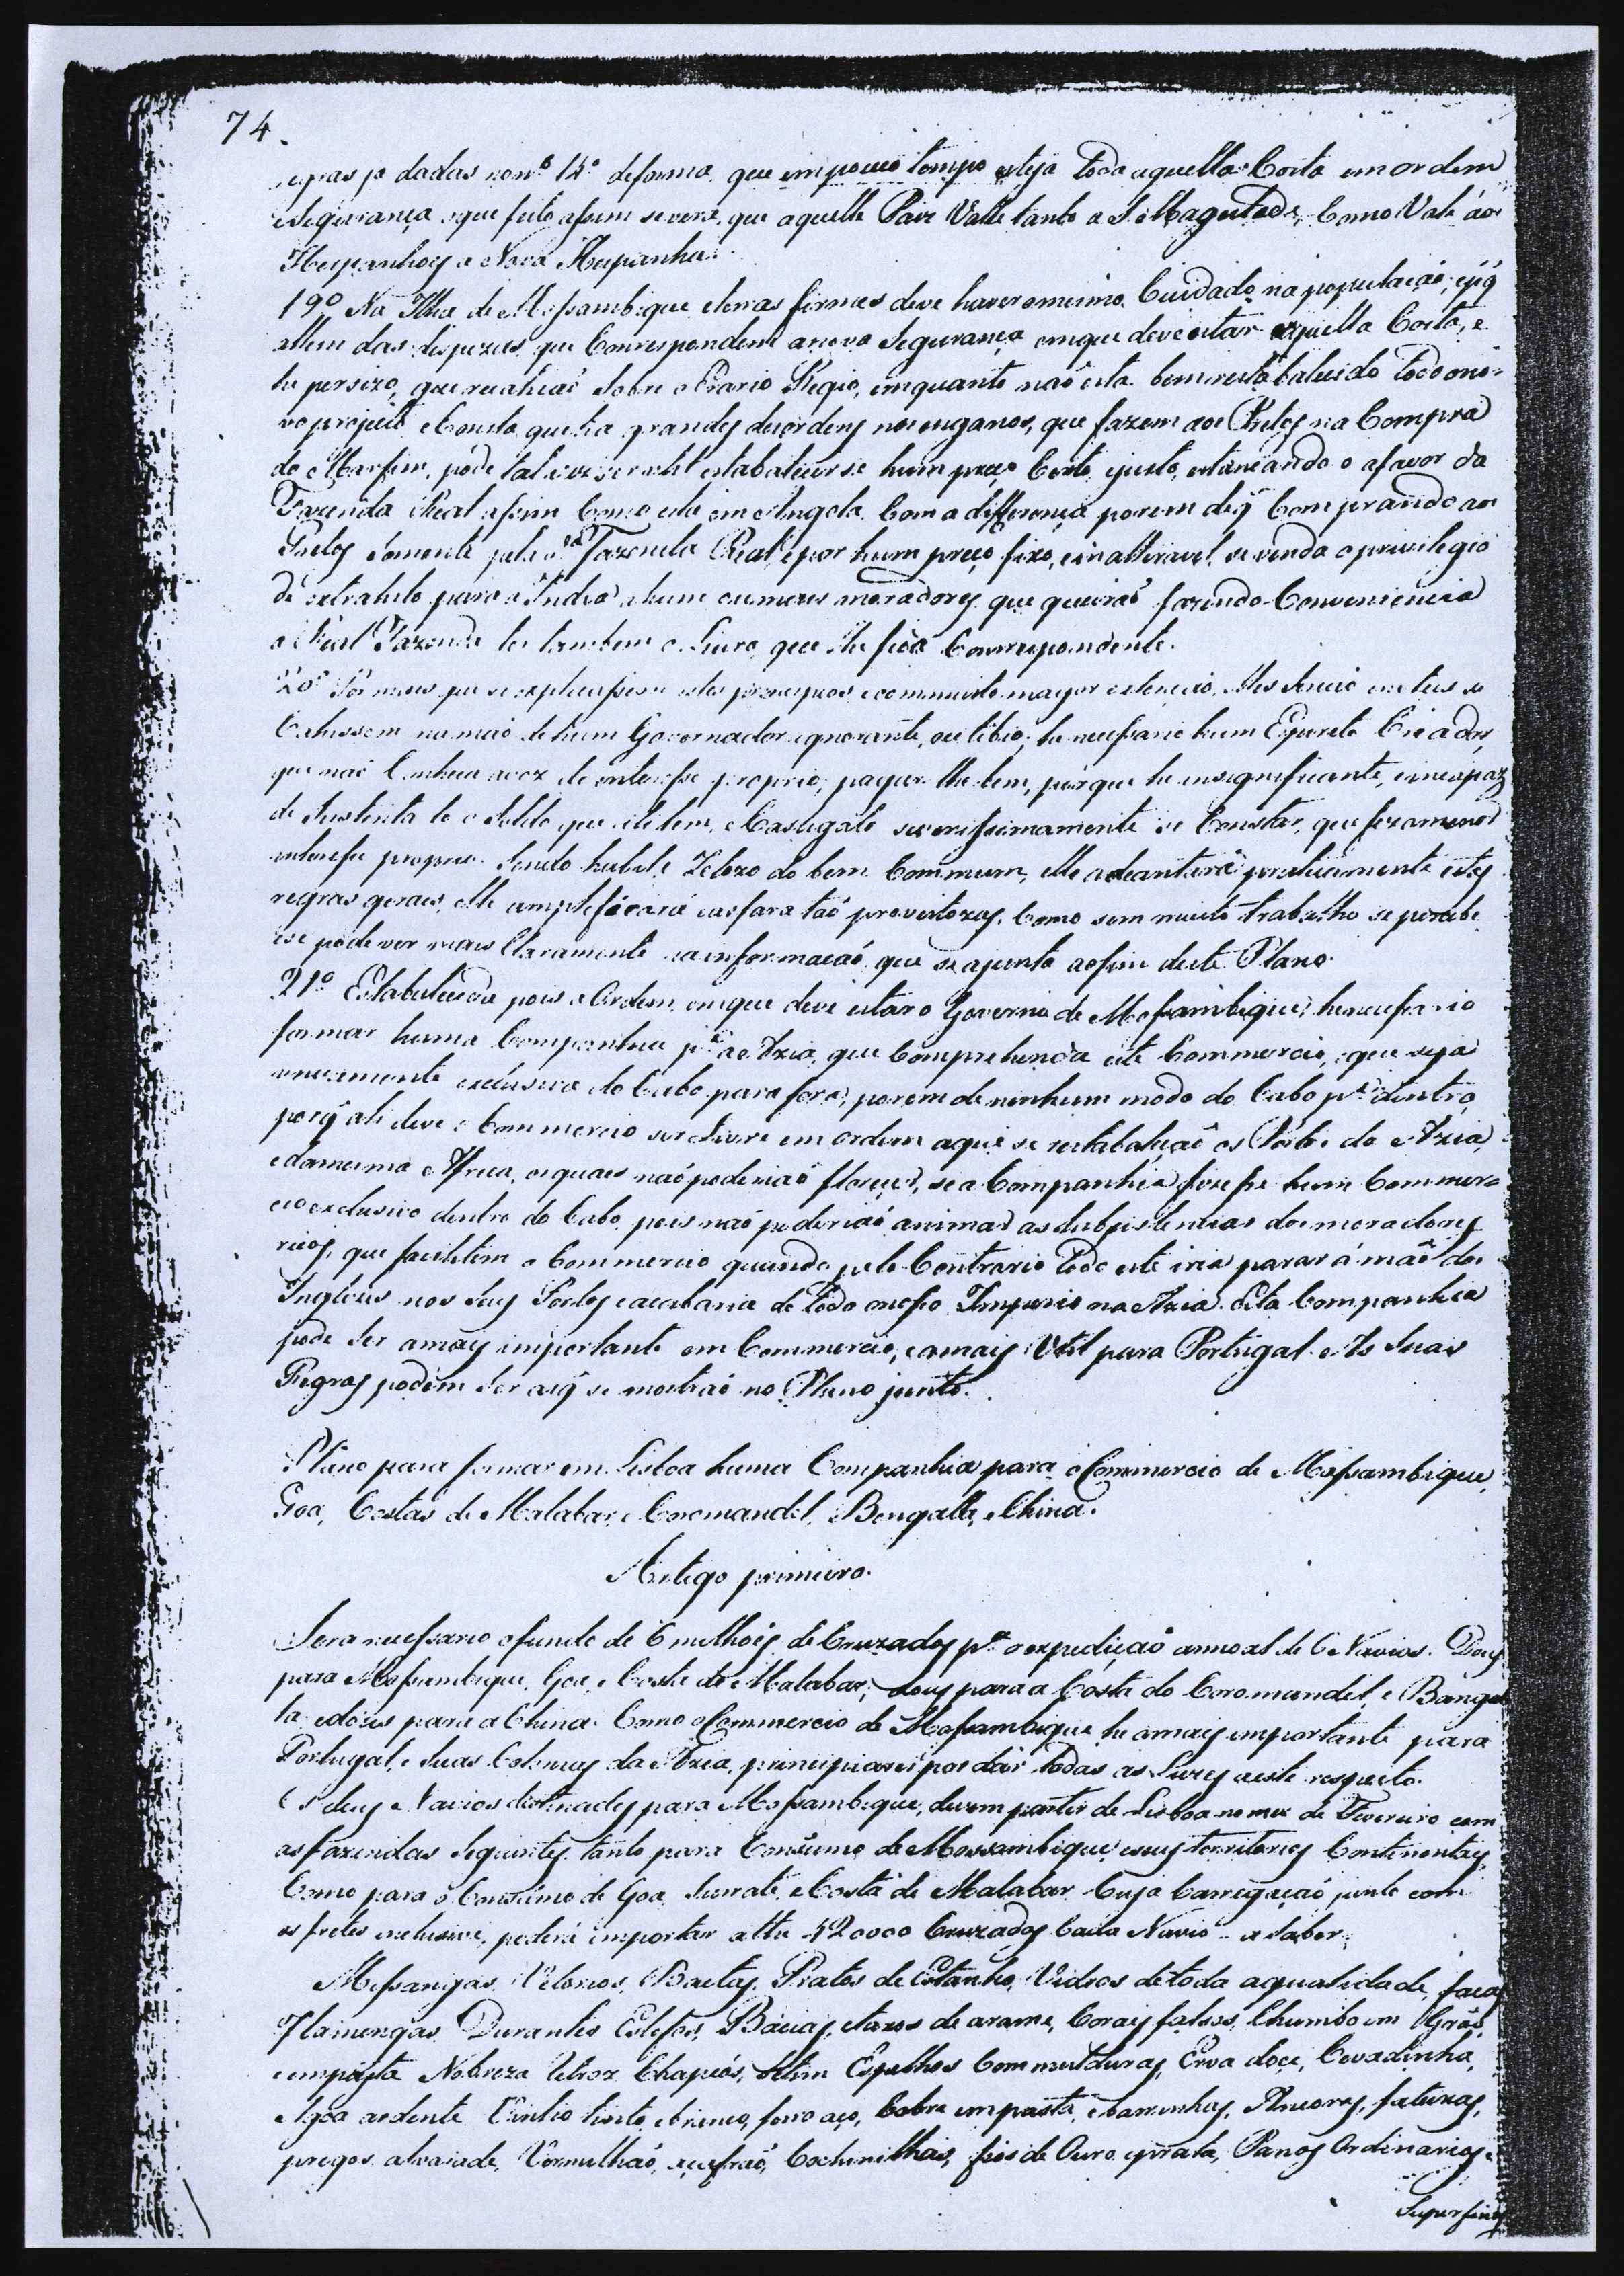 74.
regras ja dadas no nº 14º de forma que em pouco tempo esteja toda aquella Costa em ordem
e Segurança, o que feito assim se verá, que aquelle Paiz Valle tanto a S. Magestade, Como Vale áos
Hespanhoes a Nova Hespanha.
19º Na Ilha de Mossambique e terras firmes deve haver o mesmo Cuidado na população; e pª q̃
allem das despezas que Correspondem a nova Segurança em que deve estar aquella Costa, e
he persizo, que recahião Sobre o Erario Regio, em quanto não esta bem restabalecido todo o no-
vo projecto e Consta que ha grandes desordens nos enganos, que fazem aos Pretos na Compra
do Marfim, póde talvez ser util estabalecerse hum preço Certo, e justo, estancando o a favor da
Fazenda Real assim Como esta em Angola Com a differença porem de q̃ Comprandose aos
Pretos Somente pela dª Fazenda Real, e por hum preço fixo, e inalteravel, se venda o privilegio
de extrahilo para a India a hum ou mais moradores que queirão fazendo Conveniencia
a Real Fazenda ter tambem o Lucro, que lhe fica Correspondente.
20º Por mais que se explicassem estes principios e com muito mayor extenção, Elles Serião inuteis se
Cahissem na mão de hum Governador ignorante, ou tibio; he necessario hum Espirito Creador,
que não Conheça a voz de interesse proprio; pagar lhe bem, porque he insignificante, e incapaz
de Sustenta lo o Soldo, que elle tem, e Castigalo severissimamente se Constar, que fez a menor
interesse proprio. Sendo habil, e Zelozo do bem Commum, elle adeantará praticamente estas
regras geraes, elle amplificará e as fara tão proveitozas, Como sem muito trabalho se percebe
e se pode ver mais Claramente na informação, que se ajunta ao fim deste Plano.
21º Estabalecida pois a Ordem em que deve estar o Governo de Mossambique, he necessario
formar huma Companhia pª a Azia, que Comprehenda este Commercio, e que seja
unicamente excluziva do Cabo para fora, porem de nenhum modo do Cabo pª dentro,
porq̃ ali deve o Commercio ser Livre em ordem a que se restabaleção os Portos da Azia,
e da mesma Africa, os quaes não poderião florecer, se a Companhia fizesse hum Commer-
cio exclusivo dentro do Cabo, pois não poderião animar as Subsistencias dos moradores
ricos, que facilitem o Commercio quando pelo Contrario todo este iria parar á mão dos
Inglezes nos Seus Portos e acabaria de todo o nosso Imperio na Azia. Esta Companhia
pode Ser a mais importante em Commercio, e a mais Util para Portugal. As Suas
Regras podem Ser as q̃ se mostrão no Plano junto.
Plano para formar em Lisboa huma Companhia para o Commercio de Mossambique,
Goa, Costas de Malabar, e Coromandel, Bengalla, e China.
Artigo primeiro.
Sera necessario o fundo de 6 milhoes de Cruzados pª a expedição annoal de 6 Navios. Dous
para Mossambique, Goa, e Costa de Malabar; dous para a Costa do Coromandel, e Bangal-
la e dous para a China. Como o Commercio de Mossambique he o mais importante para
Portugal, e Suas Colonias da Azia, principiarei por dar todas as Luzes a este respeito.
Os dous Navios destinados para Mossambique, devem partir de Lisboa no mez de Fevereiro com
as fazendas Seguintes tanto para Consumo de Mossambique e seus territorios Continentaes,
Como para o Consumo de Goa, Surrate, e Costa de Malabar. Cuja Carregação junto com
os fretes inclusive, poderá importar athe 420000 Cruzados Cada Navio – a Saber.
Missangas, Velorios, Baetas, Pratos de Estanho, Vidros de toda a qualidade, facas
Flamengas, Durantes Estofos, Bacias, e taxos de arame, Coraes falsos, Chumbo em Grão,
e em pasta Nobreza Retroz Chapeos, Setim Espelhos Com mulduras, Erva doce, Cevadinha,
Agoa ardente Vinho tinto, e branco, ferro aço, Cobre em pasta, e barrinhas, Ancoras, fateixas,
pregos alvaiade, Vermilhão, açafrão, Cochinilhas, fios de Ouro e prata, Panos Ordinarios e
Superfinos